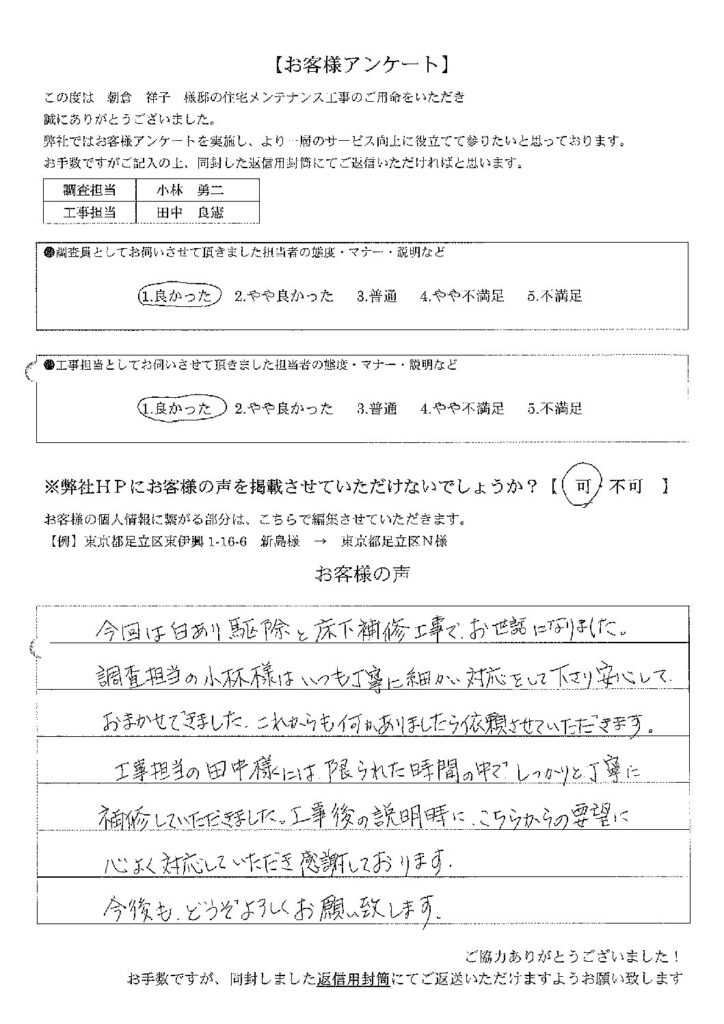 【お客様アンケート】
この度は 朝倉 祥子 様邸の住宅メンテナンス工事のご用命をいただき
誠にありがとうございました。
弊社ではお客様アンケートを実施し、より一層のサービス向上に役立てて参りたいと思っております。
お手数ですがご記入の上、同封した返信用封筒にてご返信いただければと思います。
調査担当 小林 勇二
工事担当 田中 良憲
●調査員としてお伺いさせて頂きました担当者の態度・マナー・説明など
1.良かった 2.やや良かった 3.普通 4.やや不満足 5.不満足
●工事担当としてお伺いさせて頂きました担当者の態度・マナー・説明など
1.良かった 2.やや良かった 3.普通 4.やや不満足 5.不満足
※弊社HPにお客様の声を掲載させていただけないでしょうか？【 可・不可 】
お客様の個人情報に繋がる部分は、こちらで編集させていただきます。
【例】東京都足立区東伊興1-16-6 新島様 → 東京都足立区N様
お客様の声
今回は白あり駆除と床下補修工事で、お世話になりました。
調査担当の小林様はいつも丁寧に細かい対応をして下さり安心して
おまかせできました。これからも何かありましたら依頼させていただきます。
工事担当の田中様には、限られた時間の中でしっかりと丁寧に
補修していただきました。工事後の説明時に、こちらからの要望に
心よく対応していただき感謝しております。
今後も、どうぞよろしくお願い致します。
ご協力ありがとうございました！
お手数ですが、同封しました返信用封筒にてご返送いただけますようお願い致します